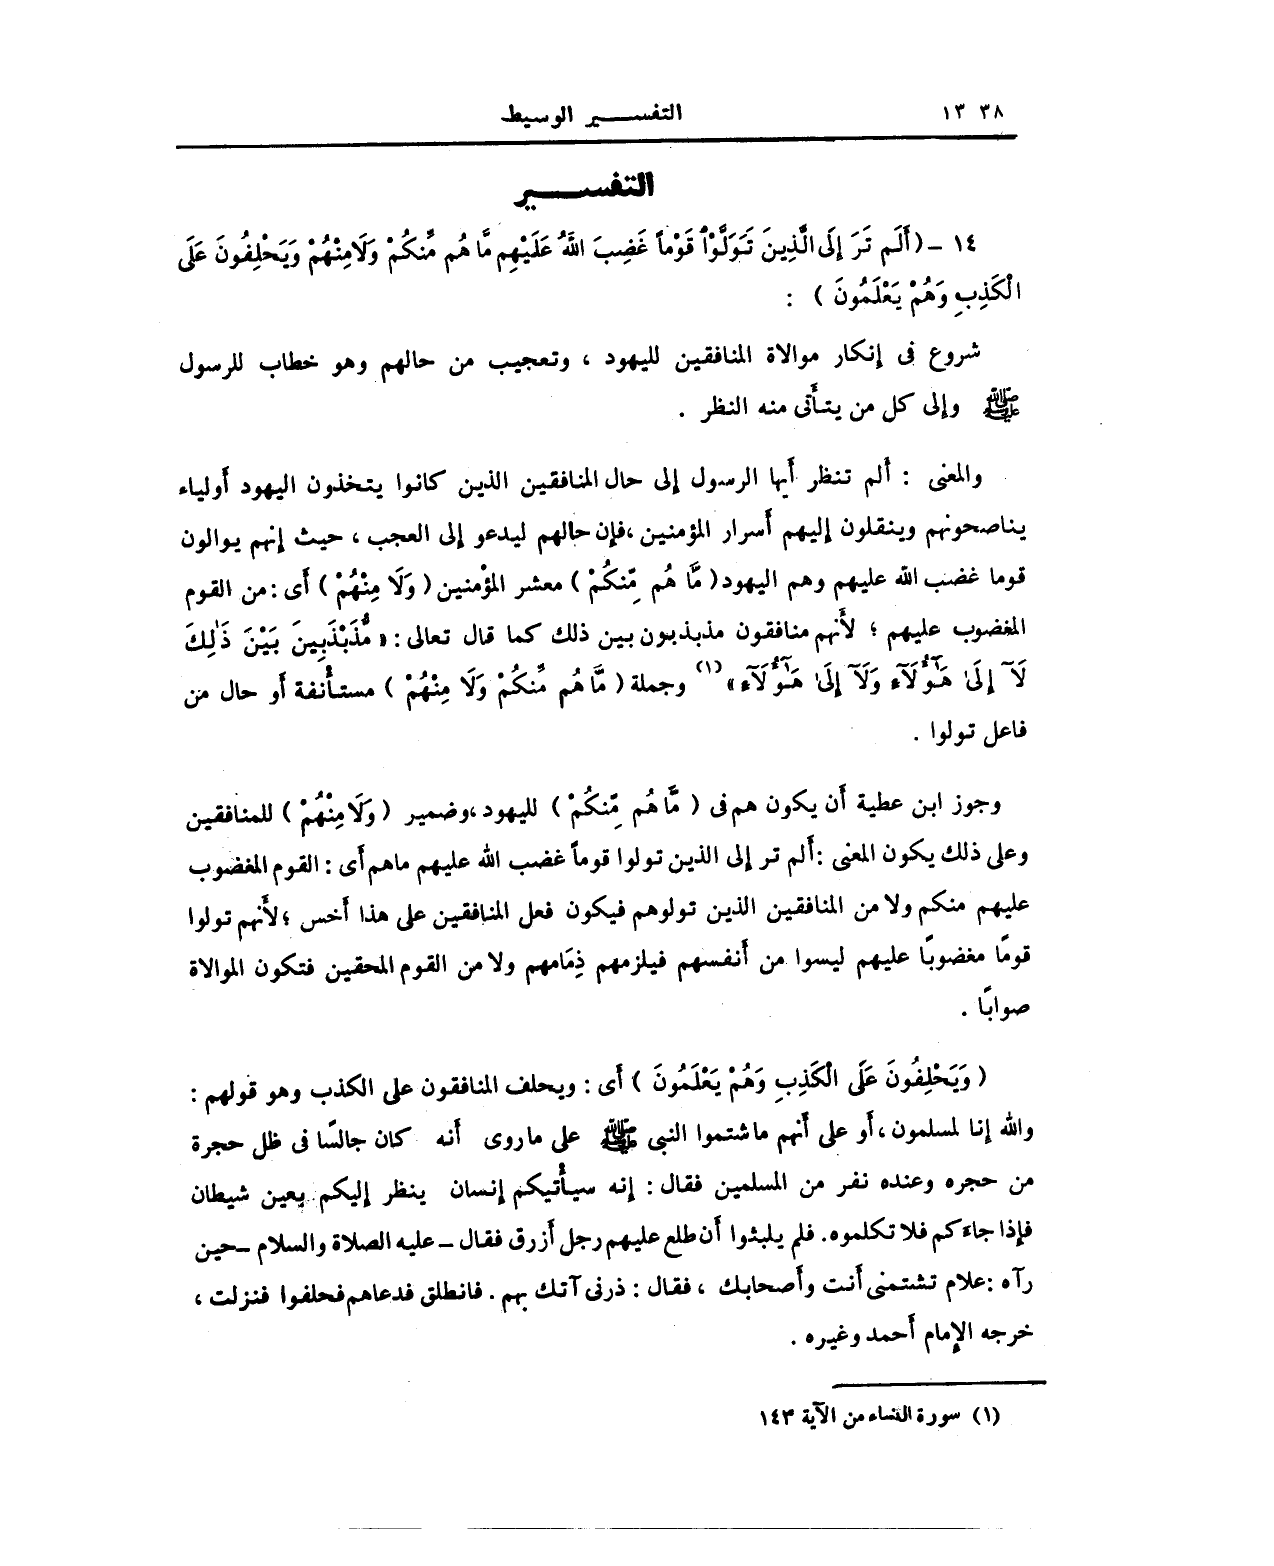 ١٣٣٨ التفسير الوسيط
التفسير
١٤ – (أَلَم تَرَ إِلَى الَّذِينَ تَوَلَّوْا۟ قَوْماً غَضِبَ اللَّهُ عَلَيْهِم مَّا هُم مِّنكُمْ وَلَا مِنْهُمْ وَيَحْلِفُونَ عَلَى
الْكَذِبِ وَهُمْ يَعْلَمُونَ ) :
شروع فى إنكار موالاة المنافقين لليهود ، وتعجيب من حالهم وهو خطاب للرسول
ﷺ وإلى كل من يتأَتى منه النظر .
والمعنى : أَلم تنظر أَيها الرسول إلى حال المنافقين الذين كانوا يتخذون اليهود أَولياء
يناصحونهم وينقلون إليهم أَسرار المؤمنين ،فإن حالهم ليدعو إلى العجب ، حيث إنهم يوالون
قوما غضب الله عليهم وهم اليهود( مَّا هُم مِّنكُمْ ) معشر المؤْمنين ( وَلَا مِنْهُمْ ) أَى :من القوم
المغضوب عليهم ؛ لأَنهم منافقون مذبذبون بين ذلك كما قال تعالى : « مُّذَبْذَبِينَ بَيْنَ ذَٰلِكَ
لَآ إِلَىٰ هَـٰٓؤُلَآءِ وَلَآ إِلَىٰ هَـٰٓؤُلَآءِ »(١) وجملة ( مَّا هُم مِّنكُمْ وَلَا مِنْهُمْ ) مستأْنفة أَو حال من
فاعل تولوا .
وجوز ابن عطية أَن يكون هم فى ( مَّا هُم مِّنكُمْ ) لليهود ،وضمير ( وَلَا مِنْهُمْ ) للمنافقين
وعلى ذلك يكون المعنى :أَلم تر إلى الذين تولوا قوماً غضب الله عليهم ماهم أَى : القوم المغضوب
عليهم منكم ولا من المنافقين الذين تولوهم فيكون فعل المنافقين على هذا أَخس ؛لأَنهم تولوا
قومًا مغضوبًا عليهم ليسوا من أَنفسهم فيلزمهم ذِمَامهم ولا من القوم المحقين فتكون الموالاة
صوابًا .
( وَيَحْلِفُونَ عَلَى الْكَذِبِ وَهُمْ يَعْلَمُونَ ) أَى : ويحلف المنافقون على الكذب وهو قولهم :
والله إنا لمسلمون ،أَو على أَنهم ماشتموا النبى ﷺ على ماروى أَنه كان جالسًا فى ظل حجرة
من حجره وعنده نفر من المسلمين فقال : إنه سيأْتيكم إنسان ينظر إليكم بعين شيطان
فإذا جاءَكم فلا تكلموه. فلم يلبثوا أَن طلع عليهم رجل أَزرق فقال – عليه الصلاة والسلام – حين
رآه :علام تشتمنى أَنت وأَصحابك ، فقال : ذرنى آتك بهم . فانطلق فدعاهم فحلفوا فنزلت ،
خرجه الإِمام أَحمد وغيره .
(١) سورة النساء من الآية ١٤٣